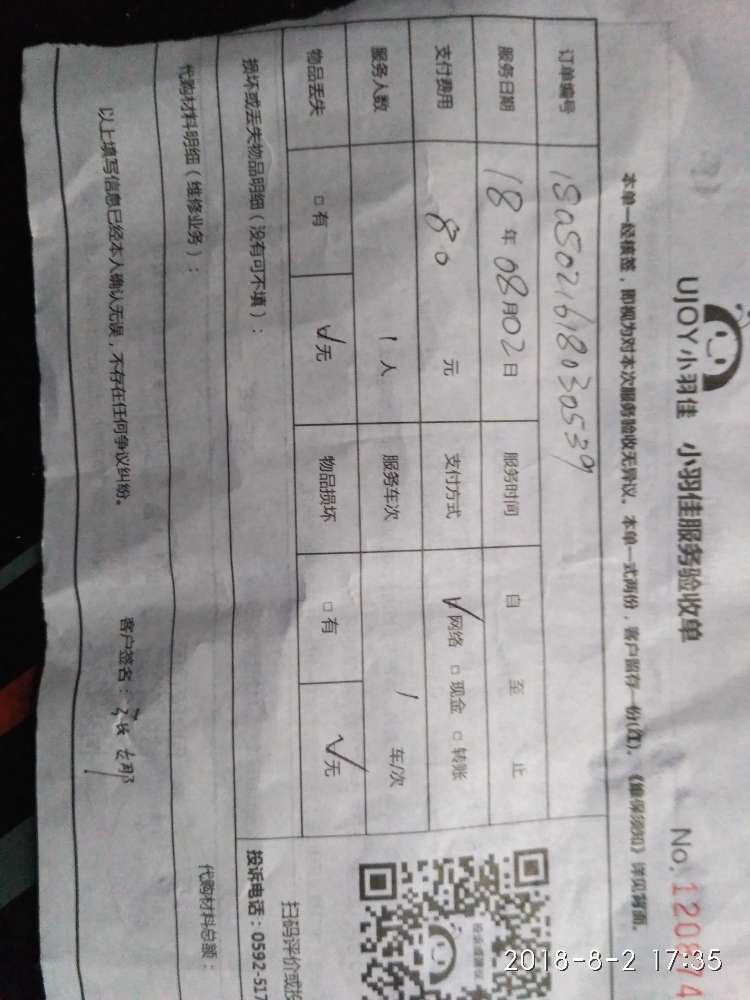 UJOY小羽佳 小羽佳服务验收单 No.
本单一经核签，即视为对本次服务验收无异议。本单一式两份，客户留存一份(红)。《维保须知》详见背面。
订单编号
服务日期 18 年 08 月 02 日 服务时间 自 至 止
支付费用 80 元 支付方式 ✓网络 □现金 □转账
服务人数 1 人 服务车次 / 车/次
物品丢失 □有 ✓无 物品损坏 □有 ✓无
损坏或丢失物品明细（没有可不填）：
扫码评价或投
投诉电话：0592-517
代购材料明细（维修业务）： 代购材料总额：
以上填写信息已经本人确认无误，不存在任何争议纠纷。 客户签名：
2018-8-2 17:35